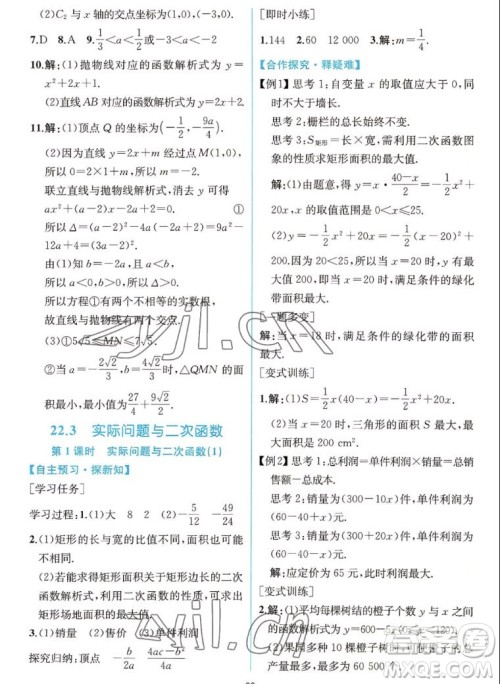 (2)C₂ 与 x 轴的交点坐标为(1,0),(-3,0).
7.D 8.A 9.1/3<a<1/2或-3<a<-2
10.解:(1)抛物线对应的函数解析式为 y=x²+2x+1.
(2)直线 AB 对应的函数解析式为 y=2x+2.
11.解:(1)顶点 Q 的坐标为(-1/2,-9a/4).
(2)因为直线 y=2x+m 经过点 M(1,0),
所以 0=2×1+m,解得 m=-2.
联立直线与抛物线解析式,消去 y,得
ax²+(a-2)x-2a+2=0.①
所以 Δ=(a-2)²-4a(-2a+2)=9a²-
12a+4.由(1)知 b=-2a,又 a<b,
所以 a<0,b>0.所以 Δ>0.
所以方程①有两个不相等的实数根.
故直线与抛物线有两个交点.
(3)①5≤MN≤7
②当 a=-2√2/3,b=4√2/3时,△QMN 的面
积最小,最小值为27/4+ .
22.3 实际问题与二次函数
第1课时 实际问题与二次函数(1)
【自主预习·探新知】
[学习任务]
学习过程:1.(1)大 8 2 (2)-5/12 -49/24
3.(1)矩形的长与宽的值不确定,有变化.
(2)若能求出矩形的长与矩形面积的二次
函数解析式,就可以用二次函数的性质求
矩形场地面积的最大值.
4.(1)销量 (2)售价 (3)单件利润
探究归纳:顶点 -b/2a (4ac-b²)/4a
[即时小练]
1.144 2.60 12 000 3.解:m=1/4.
【合作探究·释疑难】
【例1】思考1:自变量 x 的取值应大于0,同
时不大于墙长.
思考2:栅栏的总长始终不变.
思考3:S矩形=长×宽,需利用二次函数图
象的性质求矩形面积的最大值.
解:(1)由题意,得 y=x·(40-x)/2=-1/2x²+
20x,x 的取值范围是 0<x≤25.
(2)y=-1/2x²+20x=-1/2(x-20)²+
200.因为20<25,所以当 x=20时,y 有最
大值200.即当 x=20时,满足条件的绿化
带面积最大.
[一题多变]
解:当 x=18时,满足条件的绿化带的面积
最大.
[变式训练]
1.解:(1)S=1/2x(40-x)=-1/2x²+20x.
(2)当 x=20时,三角形的面积 S 最大,最大
面积是200 cm².
【例2】思考1:总利润=单件利润×销量=
总销售额-总成本.
思考2:销量为(300-10x)件,单件利润为
(60-40+x)元.
思考3:销量为(300+20x)件,单件利润为
(60-40-x)元.
解:应定价为65元时,可使利润最大.
[变式训练]
2.解:(1)平均每棵树结的橙子个数 y 与 x
的函数解析式为 y=600-5x(0≤x<120).
产量最多,最多为60 500个.